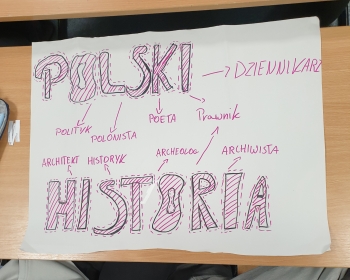 POLSKI
DZIENNIKARZ
POLITYK
POLONISTA
POETA
Prawnik
ARCHITEKT HISTORYK ARCHEOLOG ARCHIWISTA
HISTORIA